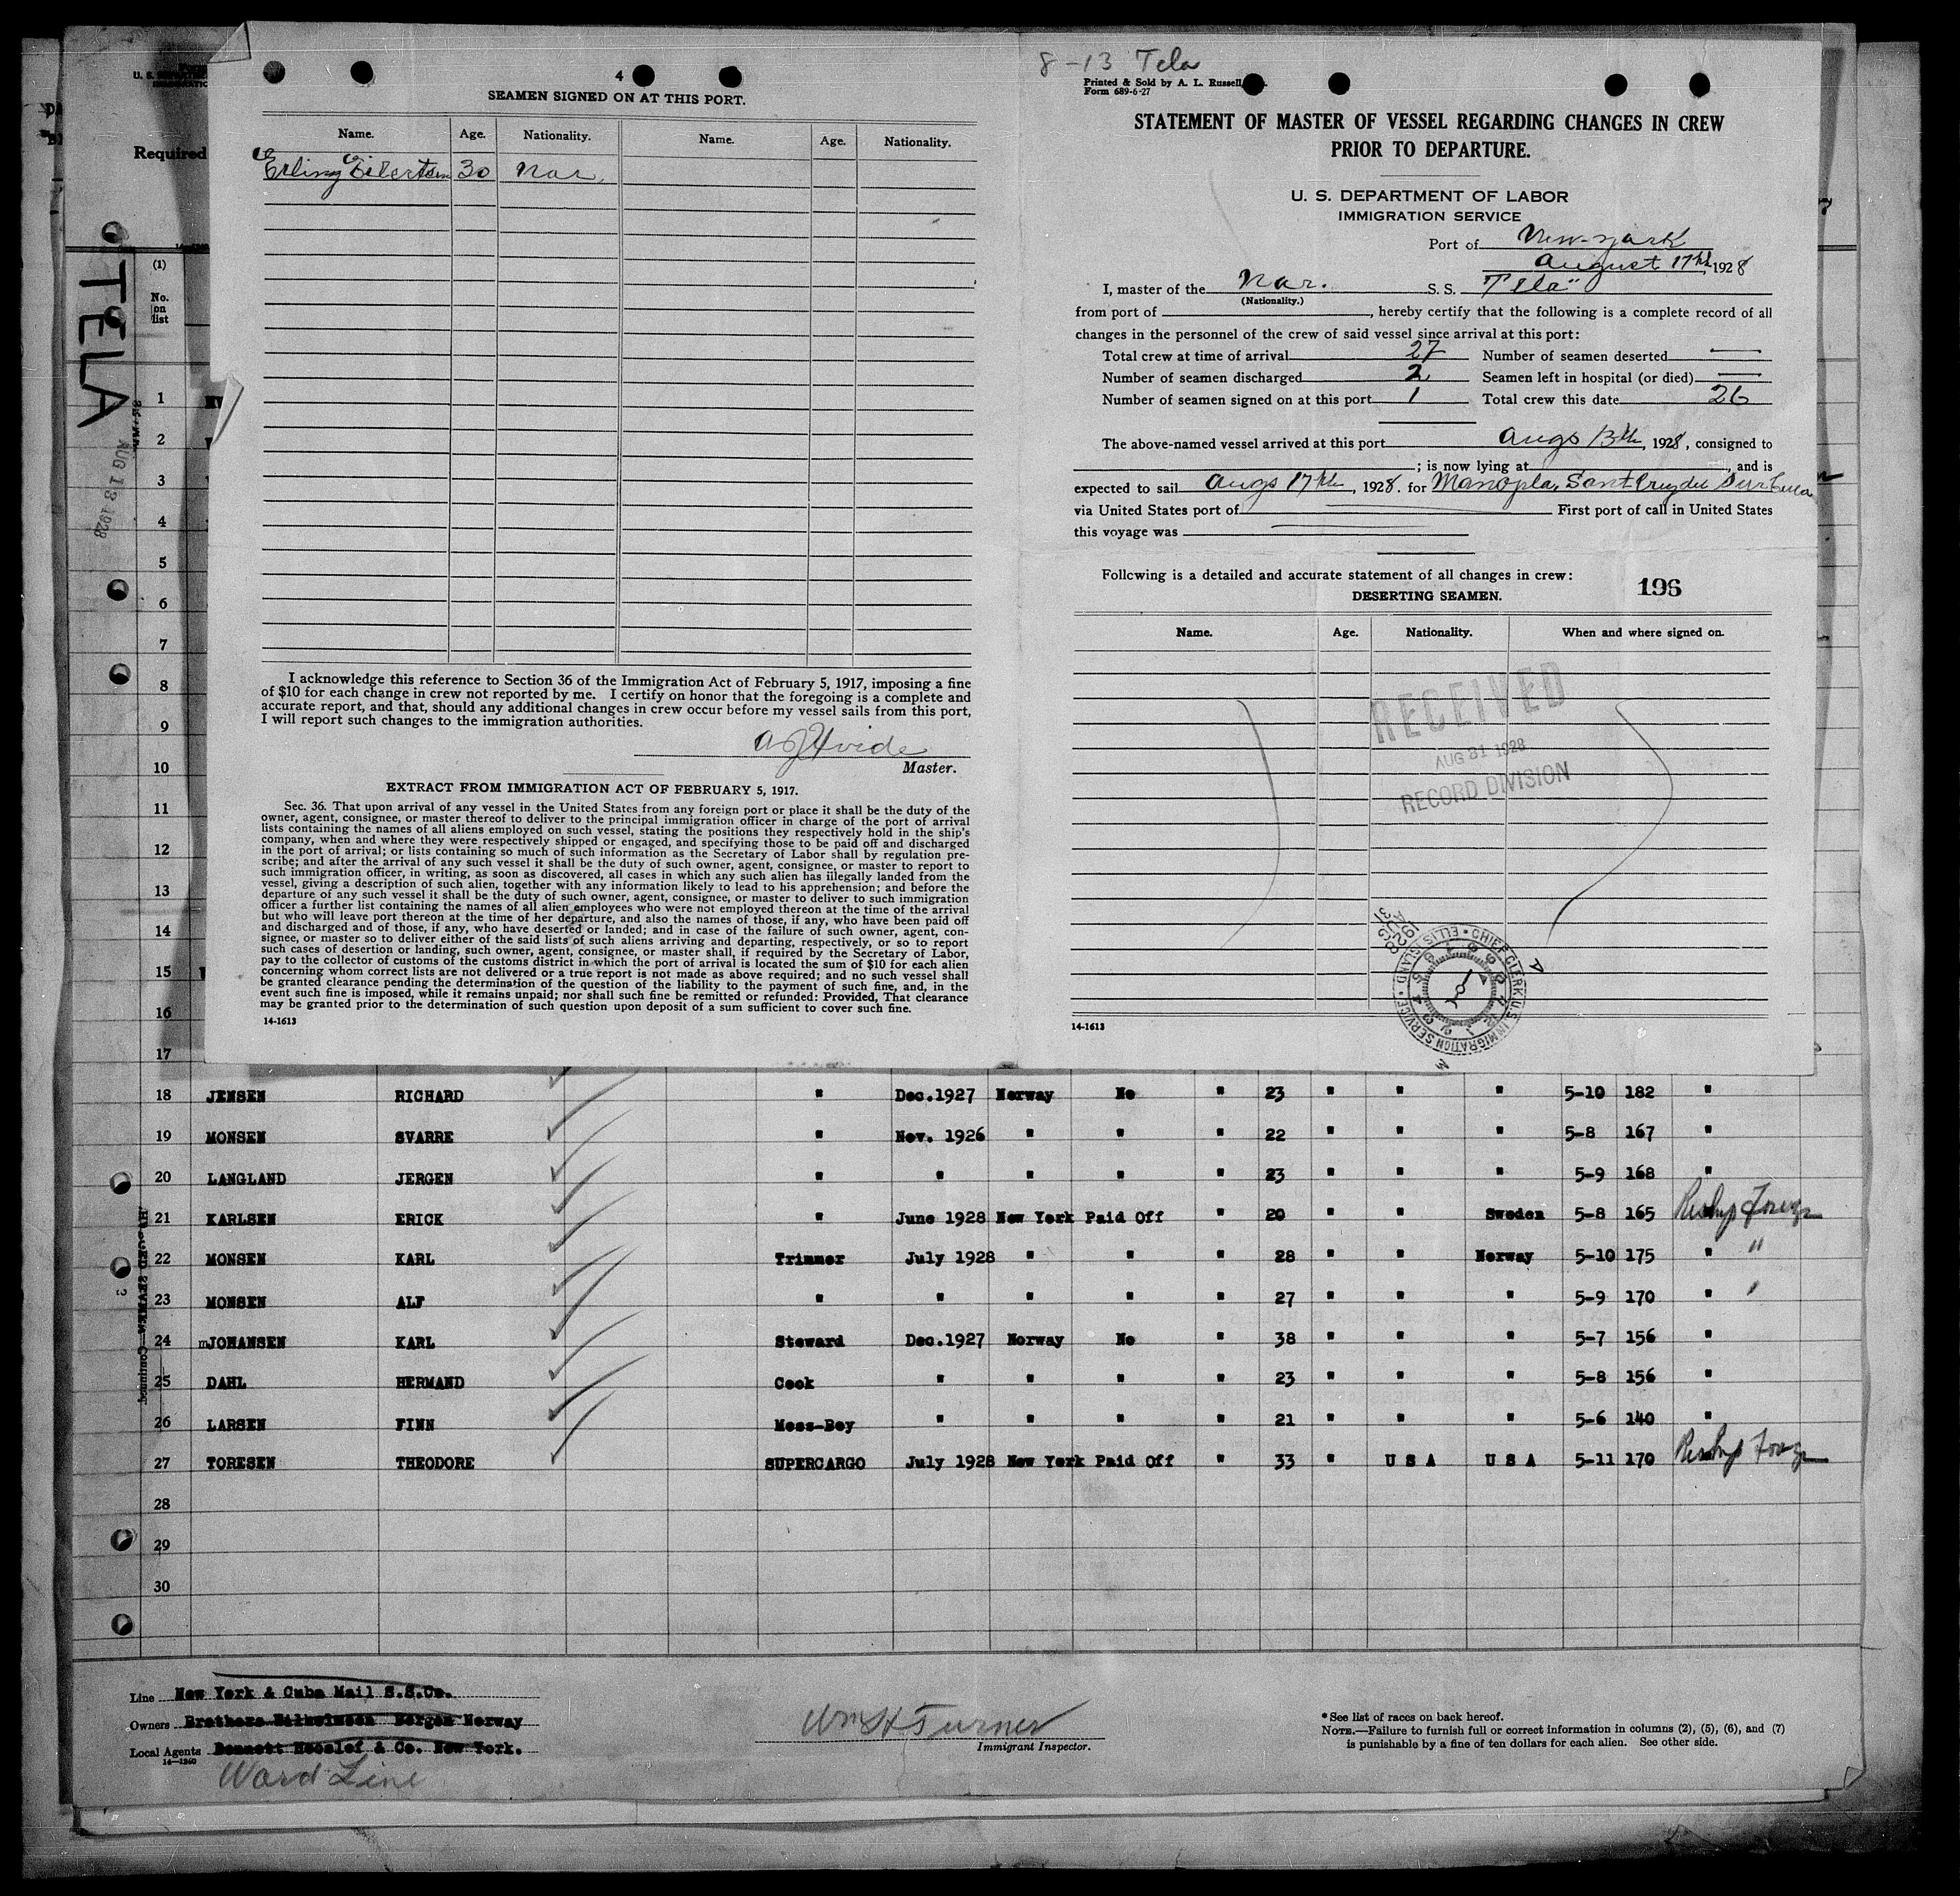 4
SEAMEN SIGNED ON AT THIS PORT.
Name. Age. Nationality. Name. Age. Nationality.
Erling Eilertsen 30 Nor.
I acknowledge this reference to Section 36 of the Immigration Act of February 5, 1917, imposing a fine
of $10 for each change in crew not reported by me. I certify on honor that the foregoing is a complete and
accurate report, and that, should any additional changes in crew occur before my vessel sails from this port,
I will report such changes to the immigration authorities.
Master.
EXTRACT FROM IMMIGRATION ACT OF FEBRUARY 5, 1917.
Sec. 36. That upon arrival of any vessel in the United States from any foreign port or place it shall be the duty of the
owner, agent, consignee, or master thereof to deliver to the principal immigration officer in charge of the port of arrival
lists containing the names of all aliens employed on such vessel, stating the positions they respectively hold in the ship's
company, when and where they were respectively shipped or engaged, and specifying those to be paid off and discharged
in the port of arrival; or lists containing so much of such information as the Secretary of Labor shall by regulation pre-
scribe; and after the arrival of any such vessel it shall be the duty of such owner, agent, consignee, or master to report to
such immigration officer, in writing, as soon as discovered, all cases in which any such alien has illegally landed from the
vessel, giving a description of such alien, together with any information likely to lead to his apprehension; and before the
departure of any such vessel it shall be the duty of such owner, agent, consignee, or master to deliver to such immigration
officer a further list containing the names of all alien employees who were not employed thereon at the time of the arrival
but who will leave port thereon at the time of her departure, and also the names of those, if any, who have been paid off
and discharged and of those, if any, who have deserted or landed; and in case of the failure of such owner, agent, con-
signee, or master so to deliver either of the said lists of such aliens arriving and departing, respectively, or so to report
such cases of desertion or landing, such owner, agent, consignee, or master shall, if required by the Secretary of Labor,
pay to the collector of customs of the customs district in which the port of arrival is located the sum of $10 for each alien
concerning whom correct lists are not delivered or a true report is not made as above required; and no such vessel shall
be granted clearance pending the determination of the question of the liability to the payment of such fine, and, in the
event such fine is imposed, while it remains unpaid; nor shall such fine be remitted or refunded: Provided, That clearance
may be granted prior to the determination of such question upon deposit of a sum sufficient to cover such fine.
14-1613
8-13 Tela
Printed & Sold by A. L. Russell
Form 689-6-27
STATEMENT OF MASTER OF VESSEL REGARDING CHANGES IN CREW
PRIOR TO DEPARTURE.
U. S. DEPARTMENT OF LABOR
IMMIGRATION SERVICE
Port of New-York
August 17th, 1928
I, master of the Nor. S. S. "Tela"
(Nationality.)
from port of , hereby certify that the following is a complete record of all
changes in the personnel of the crew of said vessel since arrival at this port:
Total crew at time of arrival 27 Number of seamen deserted —
Number of seamen discharged 2 Seamen left in hospital (or died) —
Number of seamen signed on at this port 1 Total crew this date 26
The above-named vessel arrived at this port Augs 13th, 1928, consigned to
; is now lying at , and is
expected to sail Augs 17th, 1928. for Manopla, Sur
via United States port of First port of call in United States
this voyage was
Following is a detailed and accurate statement of all changes in crew:
196
DESERTING SEAMEN.
Name. Age. Nationality. When and where signed on.
RECEIVED
AUG 31 1928
RECORD DIVISION
CHIEF CLERK U.S. IMMIGRATION SERVICE • ELLIS ISLAND •
14-1613
Required
TELA
AUG 13 1928
(1)
No.
on
list
1
2
3
4
5
6
7
8
9
10
11
12
13
14
15
16
17
18 JENSEN RICHARD " Dec.1927 Norway No " 23 " " " 5-10 182 "
19 MONSEN SVARRE " Nov. 1926 " " " 22 " " " 5-8 167 "
20 LANGLAND JERGEN " " " " " 23 " " " 5-9 168 "
21 KARLSEN ERICK " June 1928 New York Paid Off " 20 " " Sweden 5-8 165 Reship Foreign
22 MONSEN KARL Trimmer July 1928 " " " 28 " " Norway 5-10 175 " "
23 MONSEN ALF " " " " " 27 " " " 5-9 170 " "
24 JOHANSEN KARL Steward Dec.1927 Norway No " 38 " " " 5-7 156 "
25 DAHL HERMAND Cook " " " " 23 " " " 5-8 156 "
26 LARSEN FINN Mess-Boy " " " " 21 " " " 5-6 140 "
27 TORESEN THEODORE SUPERCARGO July 1928 New York Paid Off " 33 " U S A U S A 5-11 170 Reship Foreign
28
29
30
Line New York & Cuba Mail S.S.Co.
Owners Brothers Bergen Norway
Local Agents Bennett & Co. New York.
14-1240
Ward Line
Wm H Turner
Immigrant Inspector.
*See list of races on back hereof.
NOTE.—Failure to furnish full or correct information in columns (2), (5), (6), and (7)
is punishable by a fine of ten dollars for each alien. See other side.